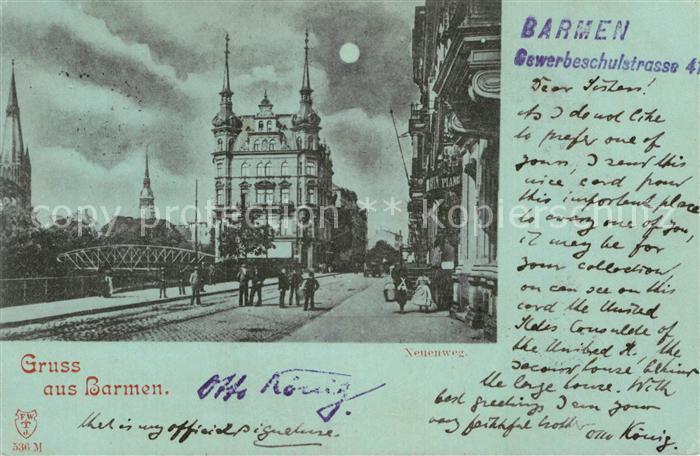 BARMEN
Gewerbeschulstrasse 4
Dear Sisters!
As I do not like
to prefer one of
yours, I send this
nice card from
this important place
to every one of you,
it may be for
your collection,
on can see on this
card the United
States Consulate of
the United St. the
second house behind
the large house. With
best greetings I am your
very faithful brother
Otto König.
PLANG
copy protection ** Kopierschutz
Neuenweg.
Gruss
aus Barmen.
Otto König
that is my official signature.
F.W.
T
J.
536 M